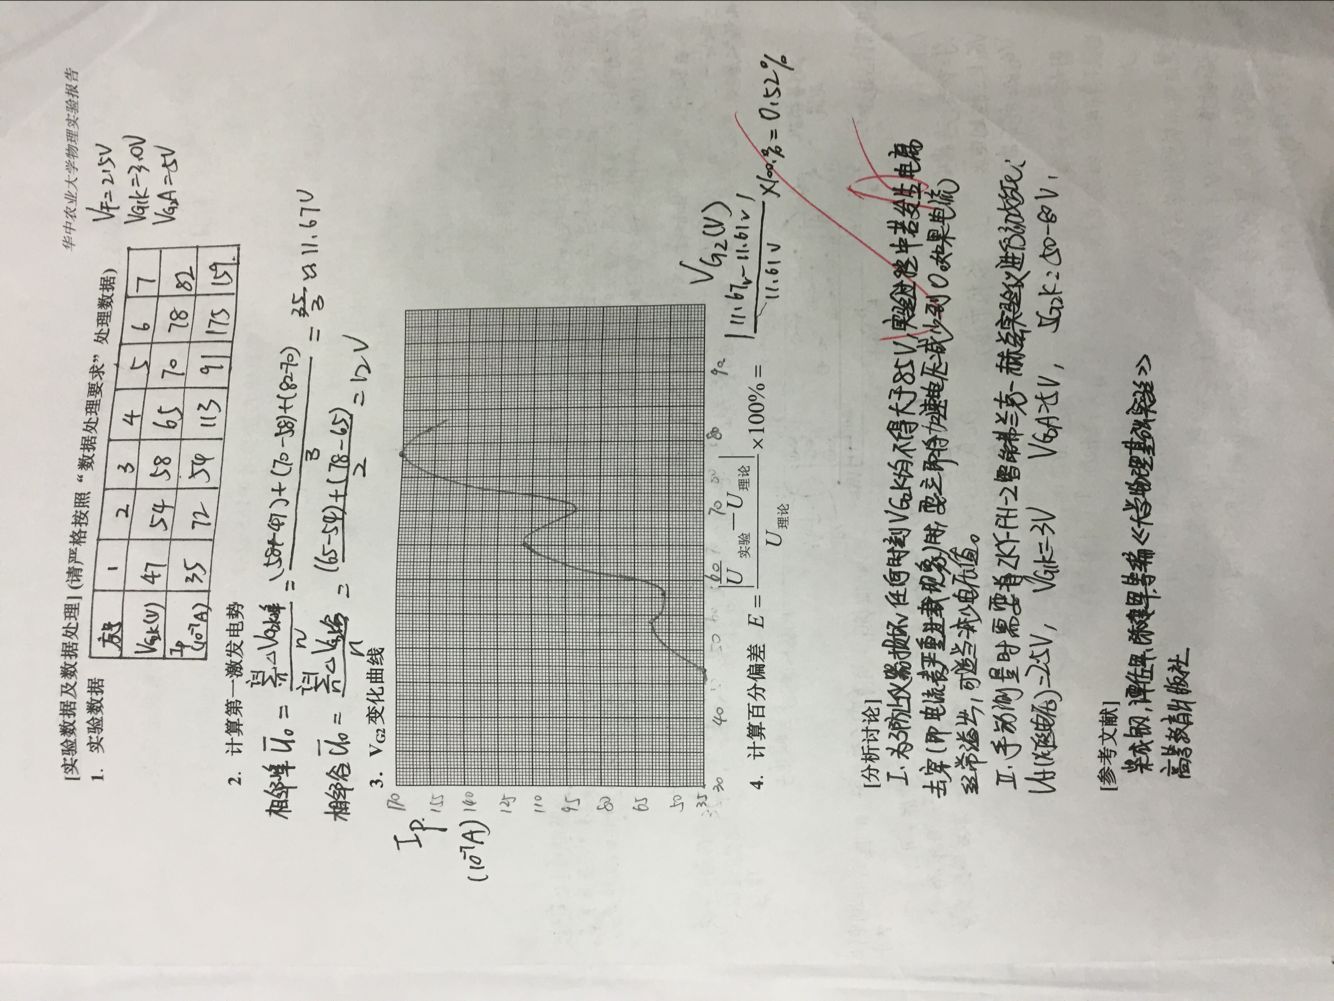 华中农业大学物理实验报告
[实验数据及数据处理] (请严格按照“数据处理要求”处理数据)
1. 实验数据
序号 1 2 3 4 5 6 7
VG2K(V) 47 54 58 65 70 78 82
Ip (10⁻⁷A) 35 72 54 113 91 175 159
VF=2.5V
VG1K=3.0V
VG2A=5V
2. 计算第一激发电势
相邻峰 U̅₀ = = (58-47)+(70-58)+(82-70) / 3 = 35/3 ≈ 11.67V
相邻谷 U̅₀ = = (65-54)+(78-65) / 2 = 12V
3. VG2 变化曲线
Ip
(10⁻⁷A)
170
155
140
125
110
95
80
65
50
35
30 40 50 60 70 80 90
VG2(V)
4. 计算百分偏差 E = |U̅实验−U理论| / U理论 ×100% = |11.67V-11.61V| / 11.61V ×100% = 0.52%
[分析讨论]
I. 为了防止仪器损坏,任何时刻VG2K均不得大于85V,实验过程中若发生电离
击穿(即电流表严重过载现象)时,要立即将加速电压减少到0。如果电流
经常溢出,可适当减少电压值。
II. 手动测量时需要将ZKY-FH-2智能弗兰克-赫兹实验仪进行
=2.5V, VG1K=3V =5V, 50-80V
[参考文献]
等编《大学物理基础实验》
高等教育出版社